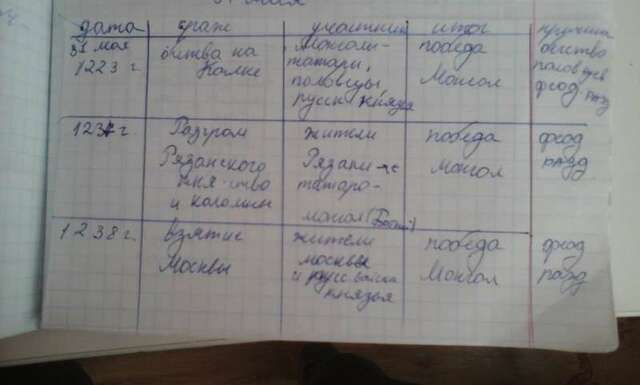 дата сраж участники итог причина
31 мая 1223 г. битва на Калке Монголы-татары, половцы, русск князья победа Монгол бегство половцев феод разд
1237 г Разгром Рязанского кня-ство и коломны жители Рязани -с татаро-монгол (Батый) победа Монгол феод разд
1238 г. взятие Москвы жители москвы и русс войска князья победа Монгол феод разд